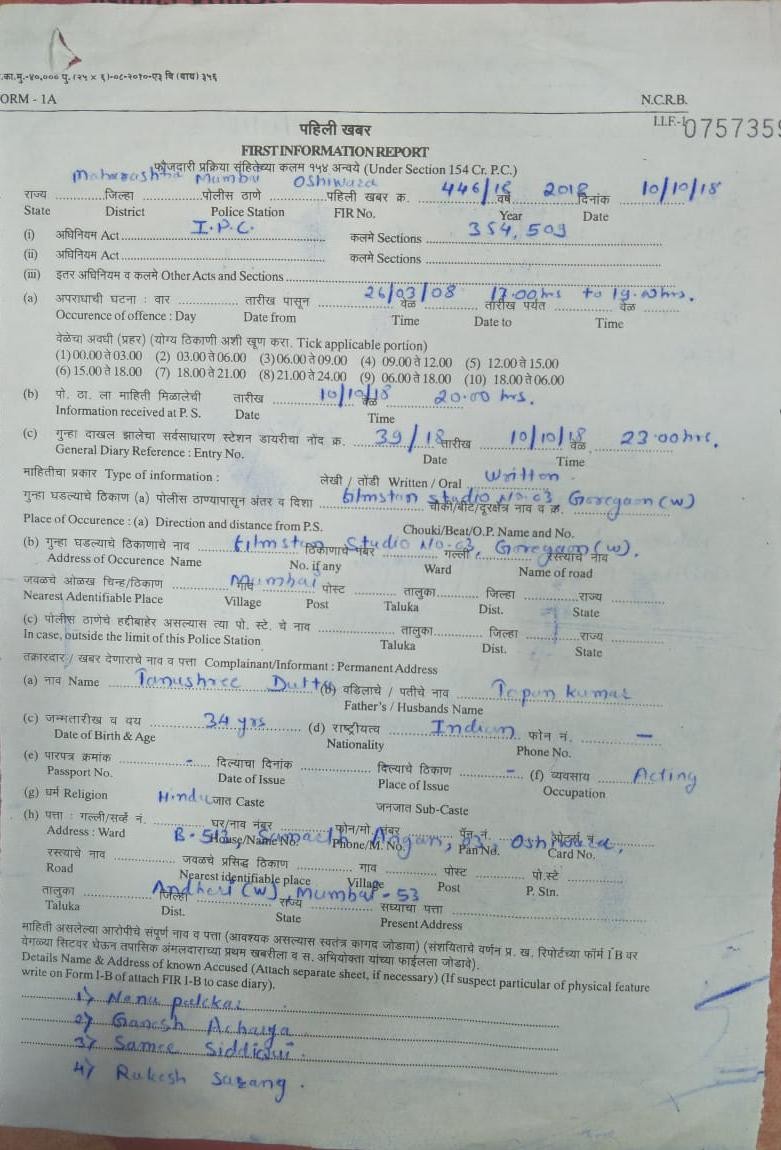 .का.मु.-४०,००० पु. (२५ × ६)-०८-२०१०-ए३ वि (वाय) ३५६
ORM - 1A N.C.R.B.
पहिली खबर I.I.F.-I 0757359
FIRST INFORMATION REPORT
फौजदारी प्रक्रिया संहितेच्या कलम १५४ अन्वये (Under Section 154 Cr. P.C.)
Maharashtra Mumbai Oshiwara 446/18 2018 10/10/18
राज्य जिल्हा पोलीस ठाणे पहिली खबर क्र. वर्ष दिनांक
State District Police Station FIR No. Year Date
(i) अधिनियम Act I.P.C. कलमे Sections 354, 509
(ii) अधिनियम Act कलमे Sections
(iii) इतर अधिनियम व कलमे Other Acts and Sections
(a) अपराधाची घटना : वार तारीख पासून 26/03/08 वेळ 17.00hrs तारीख पर्यंत to 19.00hrs. वेळ
Occurence of offence : Day Date from Time Date to Time
वेळेचा अवधी (प्रहर) (योग्य ठिकाणी अशी खूण करा. Tick applicable portion)
(1) 00.00 ते 03.00 (2) 03.00 ते 06.00 (3) 06.00 ते 09.00 (4) 09.00 ते 12.00 (5) 12.00 ते 15.00
(6) 15.00 ते 18.00 (7) 18.00 ते 21.00 (8) 21.00 ते 24.00 (9) 06.00 ते 18.00 (10) 18.00 ते 06.00
(b) पो. ठा. ला माहिती मिळालेची तारीख 10/10/18 वेळ 20.00 hrs.
Information received at P. S. Date Time
(c) गुन्हा दाखल झालेचा सर्वसाधारण स्टेशन डायरीचा नोंद क्र. 39/18 तारीख 10/10/18 वेळ 23.00hrs.
General Diary Reference : Entry No. Date Time
माहितीचा प्रकार Type of information : लेखी / तोंडी Written / Oral Written
गुन्हा घडल्याचे ठिकाण (a) पोलीस ठाण्यापासून अंतर व दिशा filmstan studio No.03, Goregaon (w) चौकी/बीट/दूरक्षेत्र नाव व क्र.
Place of Occurence : (a) Direction and distance from P.S. Chouki/Beat/O.P. Name and No.
(b) गुन्हा घडल्याचे ठिकाणाचे नाव filmstan Studio No.03, Goregaon (w). ठिकाणाचे नंबर गल्ली रस्त्याचे नाव
Address of Occurence Name No. if any Ward Name of road
जवळचे ओळख चिन्ह/ठिकाण Mumbai गाव पोस्ट तालुका जिल्हा राज्य
Nearest Adentifiable Place Village Post Taluka Dist. State
(c) पोलीस ठाणेचे हद्दीबाहेर असल्यास त्या पो. स्टे. चे नाव तालुका जिल्हा राज्य
In case, outside the limit of this Police Station Taluka Dist. State
तक्रारदार / खबर देणाराचे नाव व पत्ता Complainant/Informant : Permanent Address
(a) नाव Name Tanushree Dutta (b) वडिलाचे / पतीचे नाव Tapan kumar
Father's / Husbands Name
(c) जन्मतारीख व वय 34 yrs (d) राष्ट्रीयत्व Indian फोन नं. -
Date of Birth & Age Nationality Phone No.
(e) पारपत्र क्रमांक - दिल्याचा दिनांक दिल्याचे ठिकाण - (f) व्यवसाय Acting
Passport No. Date of Issue Place of Issue Occupation
(g) धर्म Religion Hindu जात Caste जनजात Sub-Caste
(h) पत्ता : गल्ली/सर्व्हे नं. घर/नाव नंबर फोन/मो. नंबर पॅन नं.
Address : Ward House/Name No. Phone/M. No. Pan No. Card No.
B-513, Angan, Oshiwara,
रस्त्याचे नाव जवळचे प्रसिद्ध ठिकाण गाव पोस्ट पो.स्टे
Road Nearest identifiable place Village Post P. Stn.
तालुका Andheri (w), Mumbai-53 जिल्हा राज्य सध्याचा पत्ता
Taluka Dist. State Present Address
माहिती असलेल्या आरोपीचे संपूर्ण नाव व पत्ता (आवश्यक असल्यास स्वतंत्र कागद जोडावा) (संशयिताचे वर्णन प्र. ख. रिपोर्टच्या फॉर्म I B वर
वेगळ्या सिटवर घेऊन तपासिक अंमलदाराच्या प्रथम खबरीला व स. अभियोक्ता यांच्या फाईलला जोडावे).
Details Name & Address of known Accused (Attach separate sheet, if necessary) (If suspect particular of physical feature
write on Form I-B of attach FIR I-B to case diary).
1) Nana patekar
2) Ganesh Acharya
3) Samee Siddiqui.
4) Rakesh sarang.